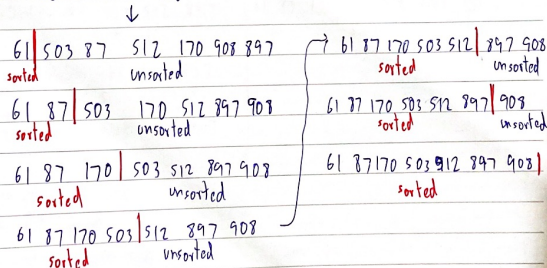 61 | 503 87 512 170 908 897
sorted unsorted
61 87 | 503 170 512 897 908
sorted unsorted
61 87 170 | 503 512 897 908
sorted unsorted
61 87 170 503 | 512 897 908
sorted unsorted
61 87 170 503 512 | 897 908
sorted unsorted
61 87 170 503 512 897 | 908
sorted unsorted
61 87 170 503 912 897 908 |
sorted